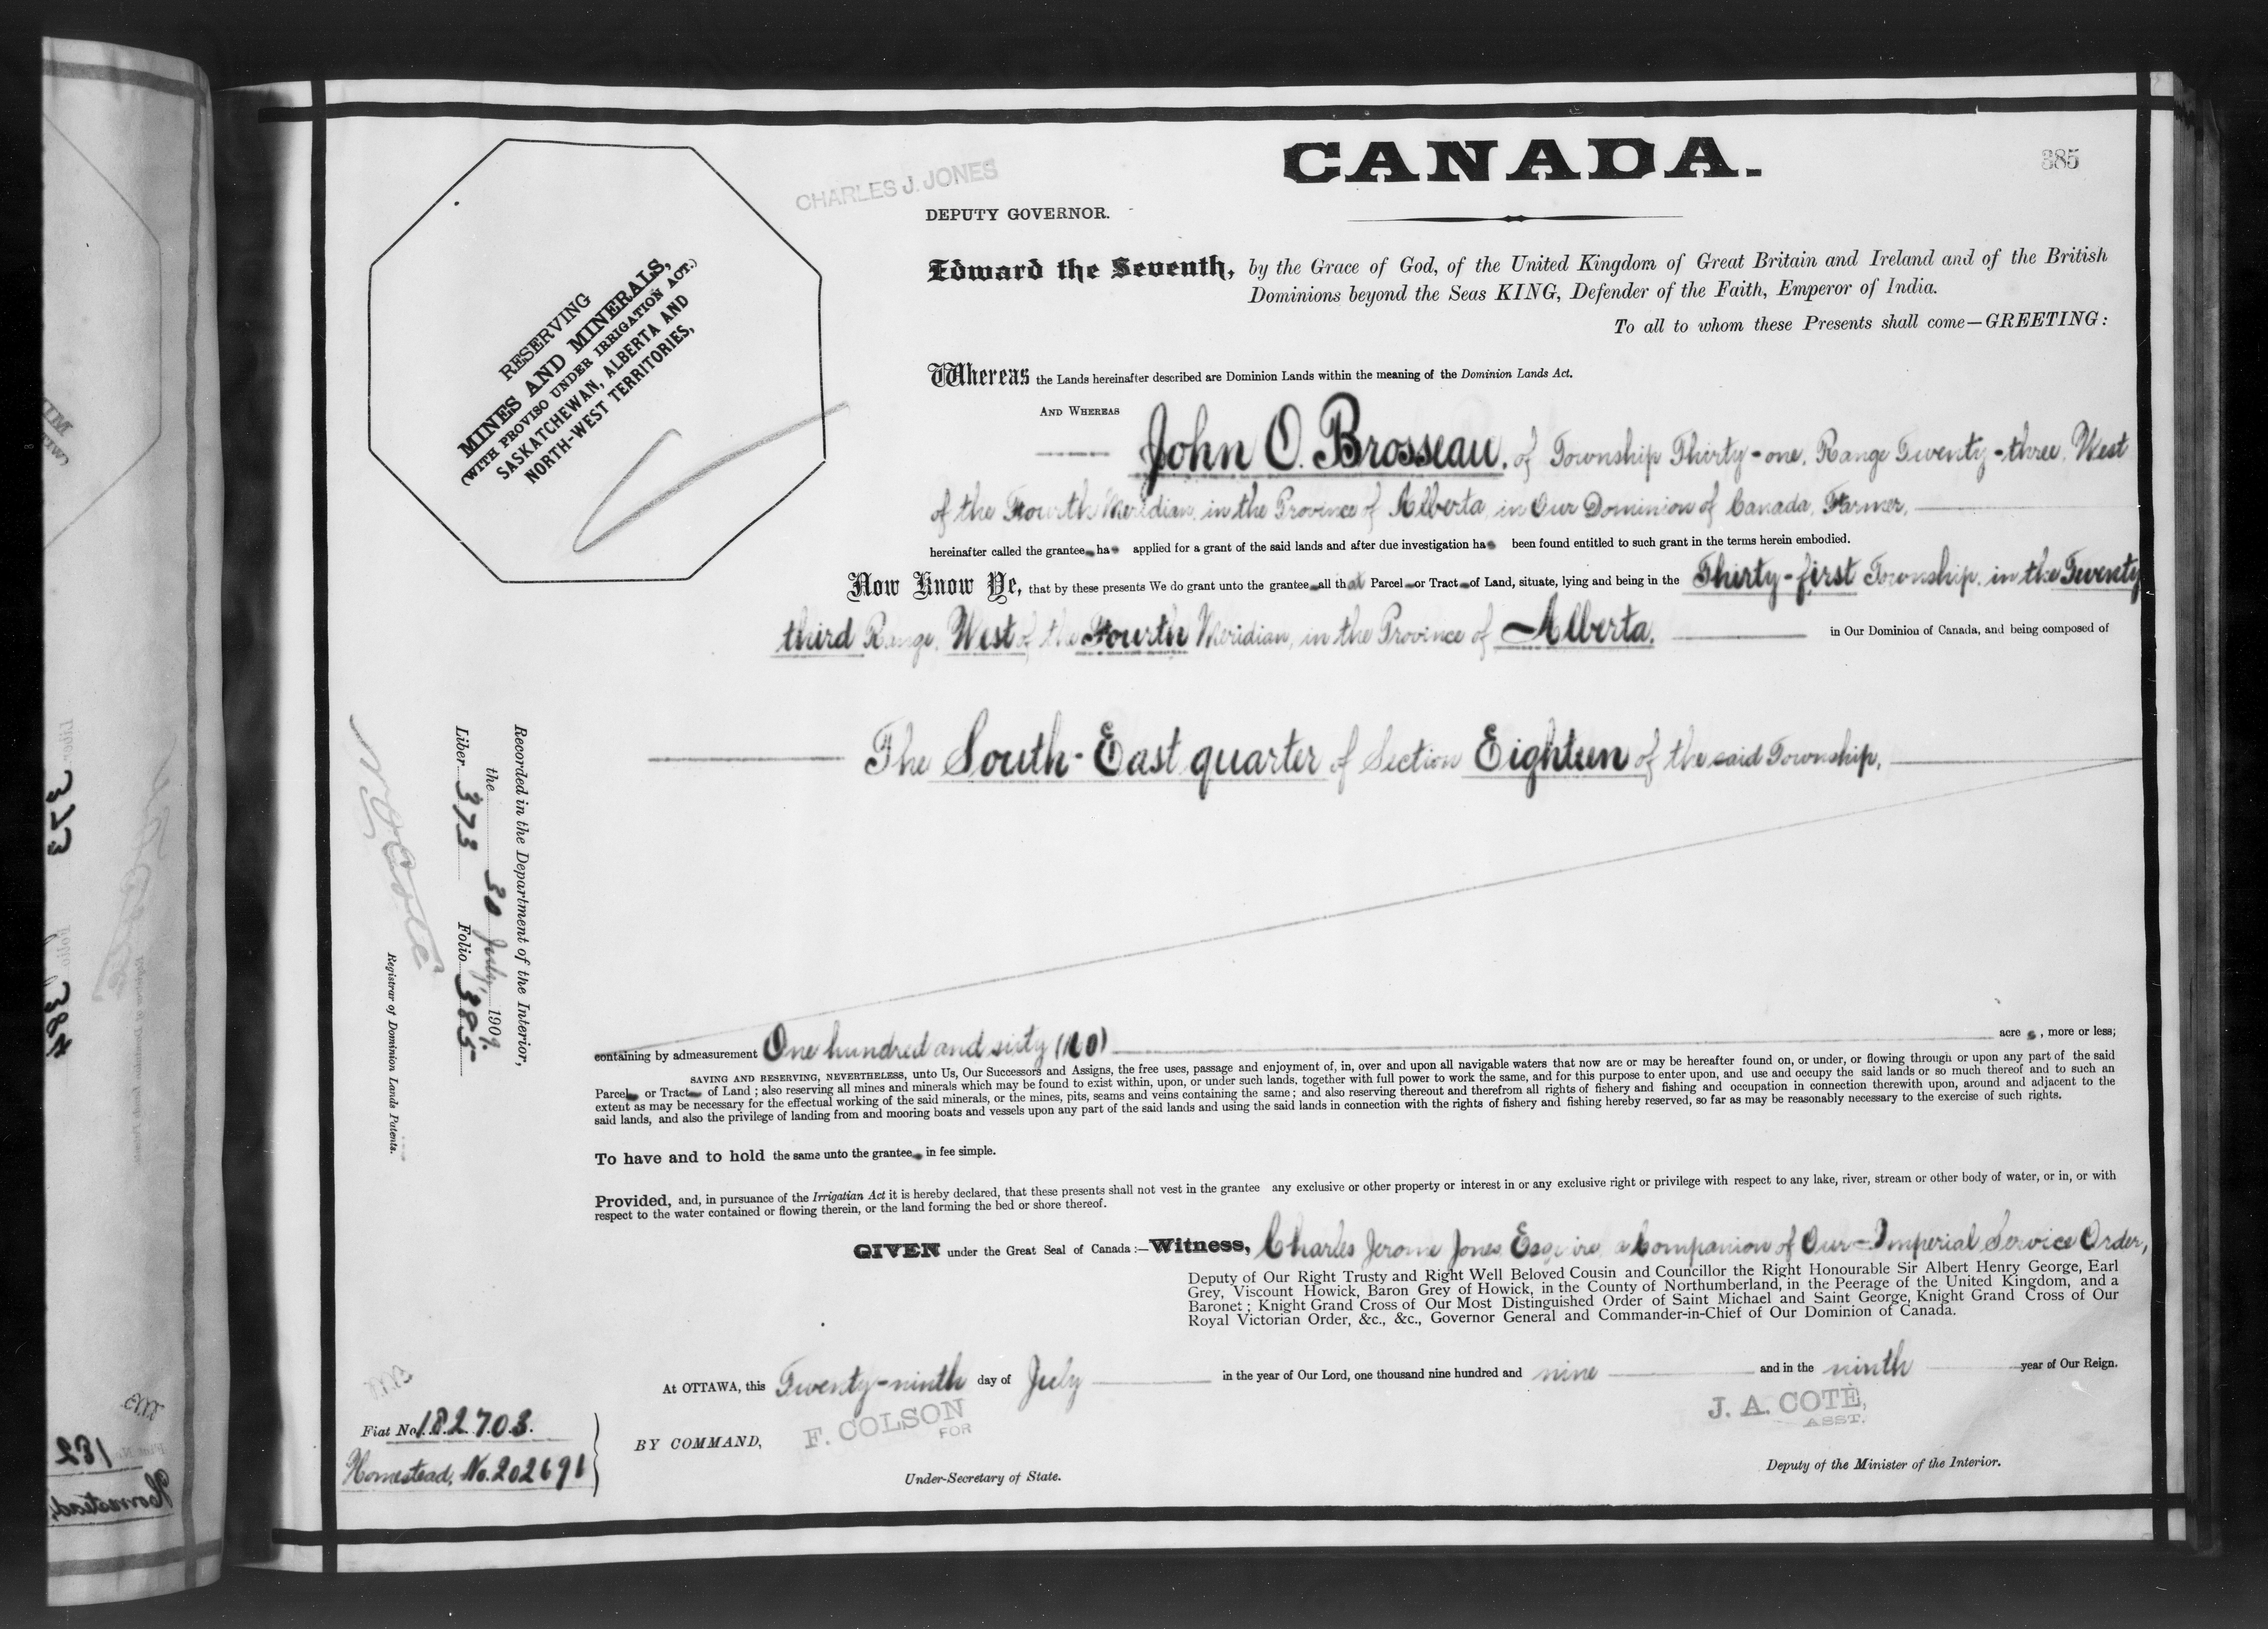 CANADA.
385
CHARLES J. JONES
DEPUTY GOVERNOR.
RESERVING
MINES AND MINERALS,
(WITH PROVISO UNDER IRRIGATION ACT.)
SASKATCHEWAN, ALBERTA AND
NORTH-WEST TERRITORIES,
Edward the Seventh, by the Grace of God, of the United Kingdom of Great Britain and Ireland and of the British
Dominions beyond the Seas KING, Defender of the Faith, Emperor of India.
To all to whom these Presents shall come—GREETING:
Whereas the Lands hereinafter described are Dominion Lands within the meaning of the Dominion Lands Act.
AND WHEREAS
John O. Brosseau, of Township Thirty-one, Range Twenty-three, West
of the Fourth Meridian, in the Province of Alberta, in Our Dominion of Canada, Farmer,
hereinafter called the grantee has applied for a grant of the said lands and after due investigation has been found entitled to such grant in the terms herein embodied.
Now Know Ye, that by these presents We do grant unto the grantee all that Parcel or Tract of Land, situate, lying and being in the Thirty-first Township, in the Twenty
third Range, West of the Fourth Meridian, in the Province of Alberta, in Our Dominion of Canada, and being composed of
The South-East quarter of Section Eighteen of the said Township,
containing by admeasurement One hundred and sixty (160) acres, more or less;
SAVING AND RESERVING, NEVERTHELESS, unto Us, Our Successors and Assigns, the free uses, passage and enjoyment of, in, over and upon all navigable waters that now are or may be hereafter found on, or under, or flowing through or upon any part of the said
Parcel or Tract of Land; also reserving all mines and minerals which may be found to exist within, upon, or under such lands, together with full power to work the same, and for this purpose to enter upon, and use and occupy the said lands or so much thereof and to such an
extent as may be necessary for the effectual working of the said minerals, or the mines, pits, seams and veins containing the same; and also reserving thereout and therefrom all rights of fishery and fishing and occupation in connection therewith upon, around and adjacent to the
said lands, and also the privilege of landing from and mooring boats and vessels upon any part of the said lands and using the said lands in connection with the rights of fishery and fishing hereby reserved, so far as may be reasonably necessary to the exercise of such rights.
To have and to hold the same unto the grantee in fee simple.
Provided, and, in pursuance of the Irrigatian Act it is hereby declared, that these presents shall not vest in the grantee any exclusive or other property or interest in or any exclusive right or privilege with respect to any lake, river, stream or other body of water, or in, or with
respect to the water contained or flowing therein, or the land forming the bed or shore thereof.
GIVEN under the Great Seal of Canada:—Witness, Charles Jerome Jones, Esquire, a Companion of Our Imperial Service Order,
Deputy of Our Right Trusty and Right Well Beloved Cousin and Councillor the Right Honourable Sir Albert Henry George, Earl
Grey, Viscount Howick, Baron Grey of Howick, in the County of Northumberland, in the Peerage of the United Kingdom, and a
Baronet; Knight Grand Cross of Our Most Distinguished Order of Saint Michael and Saint George, Knight Grand Cross of Our
Royal Victorian Order, &c., &c., Governor General and Commander-in-Chief of Our Dominion of Canada.
At OTTAWA, this Twenty-ninth day of July in the year of Our Lord, one thousand nine hundred and nine and in the ninth year of Our Reign.
BY COMMAND,
F. COLSON
FOR
Under-Secretary of State.
J. A. COTÉ,
ASST.
Deputy of the Minister of the Interior.
Recorded in the Department of the Interior,
the 30 July 1909.
Liber 373 Folio 385
N O Coté
Registrar of Dominion Lands Patents.
Fiat No. 182703.
Homestead, No. 202691